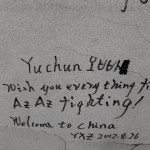 Yuchun
Wish you every thing fi
AZAZ fighting!
Welcome to china
YXZ 2012.8.26